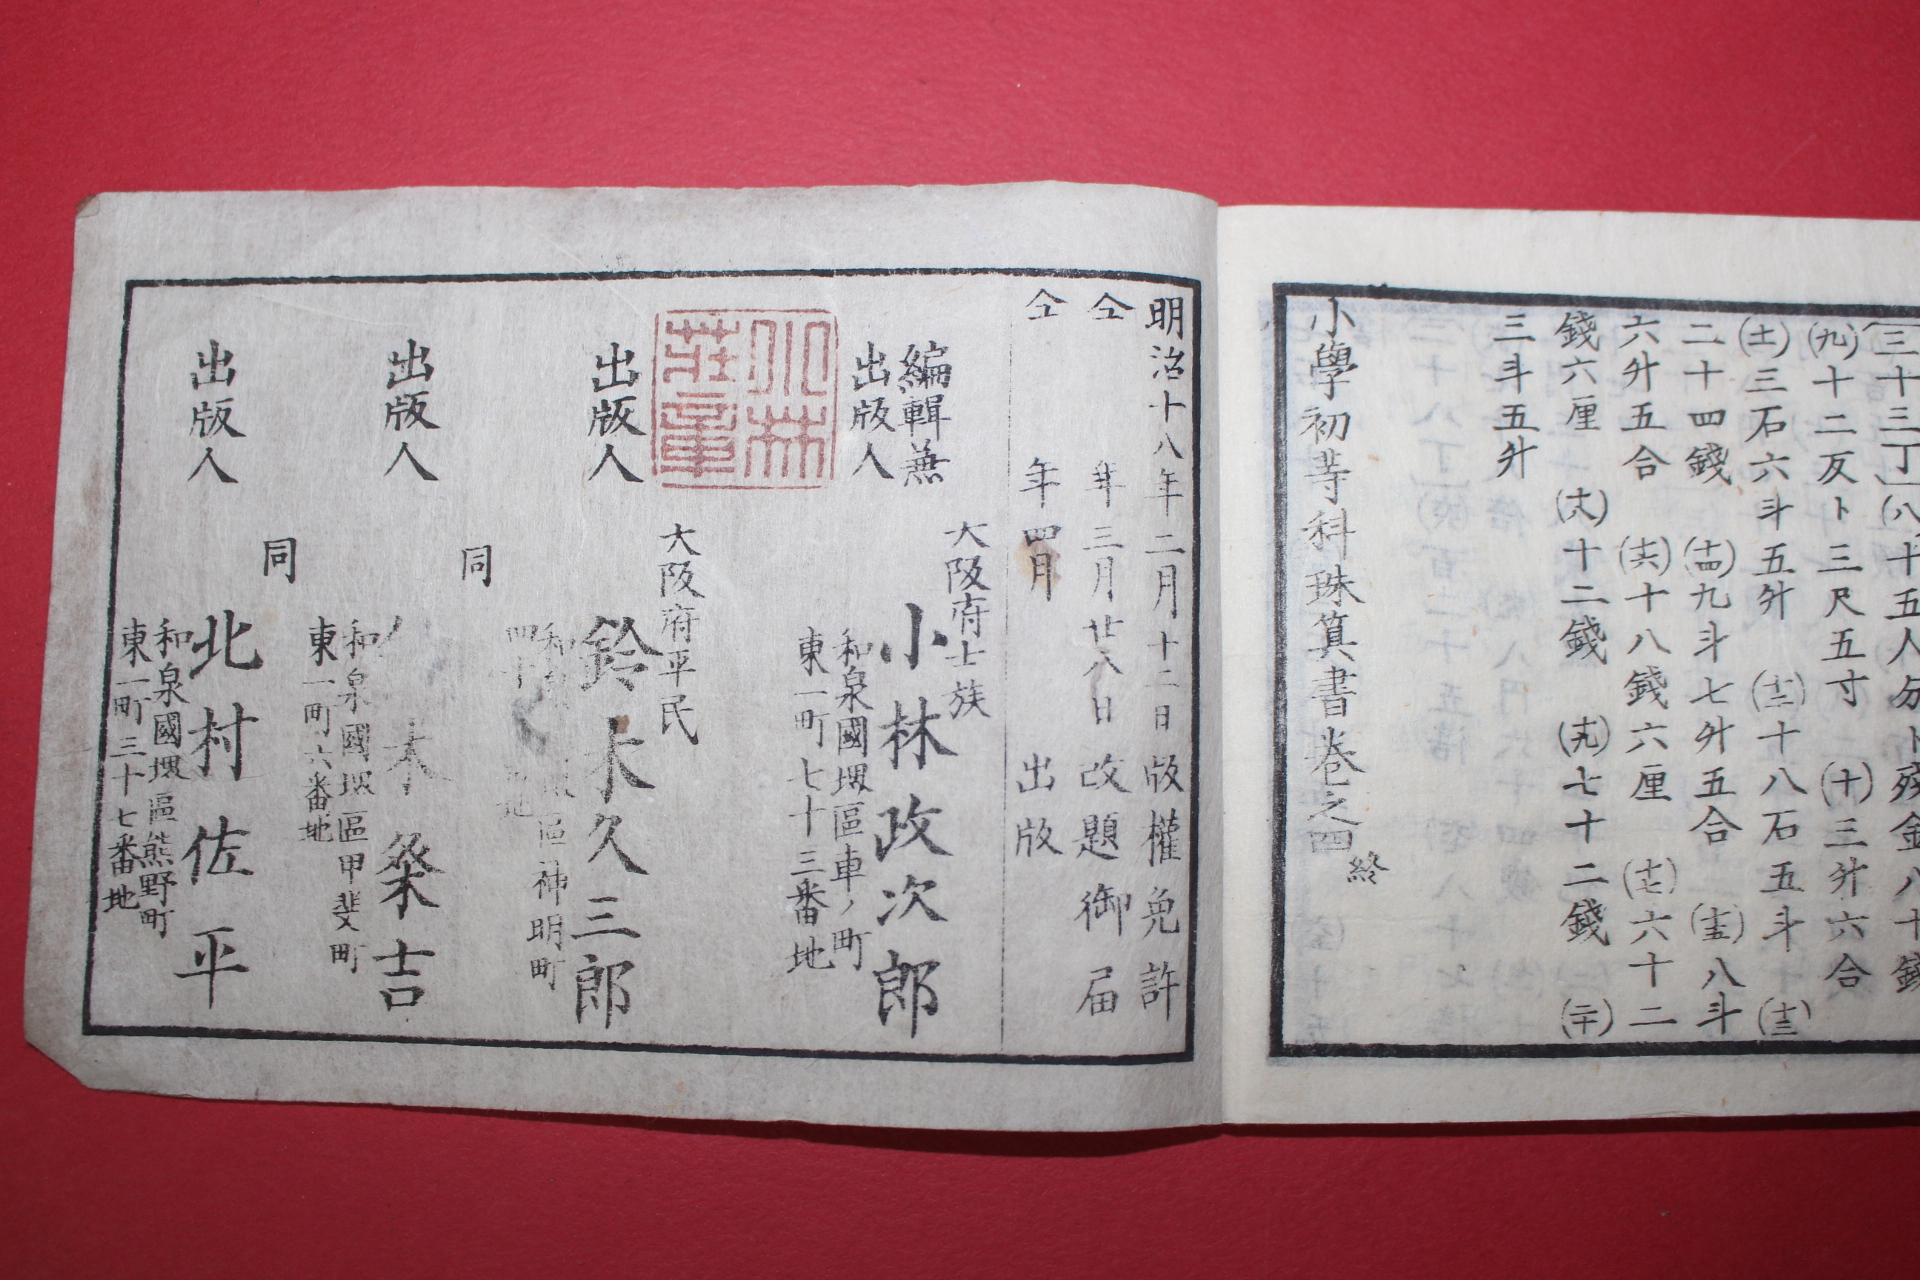 三十三丁(八)十五人分ト残金八十錢
(九)十二反ト三尺五寸 (十)三升六合
(十一)三石六斗五升 (十二)十八石五斗 (十三)
二十四錢 (十四)九斗七升五合 (十五)八斗
六升五合 (十六)十八錢六厘 (十七)六十二
錢六厘 (十八)十二錢 (十九)七十二錢 (二十)
三斗五升
小學初等科珠算書卷之四終
明治十八年二月十二日版權免許
仝 年三月廿八日改題御届
仝 年四月 出版
大阪府士族
編輯兼
出版人 小林政次郎
和泉國堺區車ノ町
東一町七十三番地
小林
莊章
大阪府平民
出版人 鈴木久三郎
區神明町
同
出版人 木粂吉
和泉國堺區甲斐町
東一町六番地
同
出版人 北村佐平
和泉國堺區熊野町
東一町三十七番地